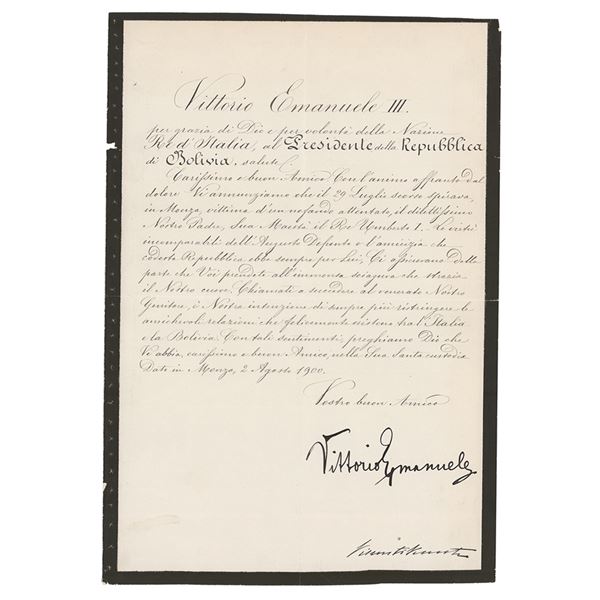 Vittorio Emanuele III.
per grazia di Dio e per volontà della Nazione
Re d'Italia, al Presidente della Repubblica
di Bolivia, salute
Carissimo e buon Amico. Con l'animo affranto dal
dolore Vi annunziamo che il 29 Luglio scorso spirava,
in Monza, vittima d'un nefando attentato, il dilettissimo
Nostro Padre, Sua Maestà il Re Umberto I. Le virtù
incomparabili dell'Augusto Defunto e l'amicizia che
codesta Repubblica ebbe sempre per Lui, Ci assicurano della
parte che Voi prendete all'immensa sciagura che strazia
il Nostro cuore. Chiamati a succedere al venerato Nostro
Genitore, è Nostra intenzione di sempre più ristringere le
amichevoli relazioni che felicemente esistono tra l'Italia
e la Bolivia. Con tali sentimenti, preghiamo Dio che
Vi abbia, carissimo e buon Amico, nella Sua santa custodia
Dato in Monza, 2 Agosto 1900.
Vostro buon Amico
Vittorio Emanuele